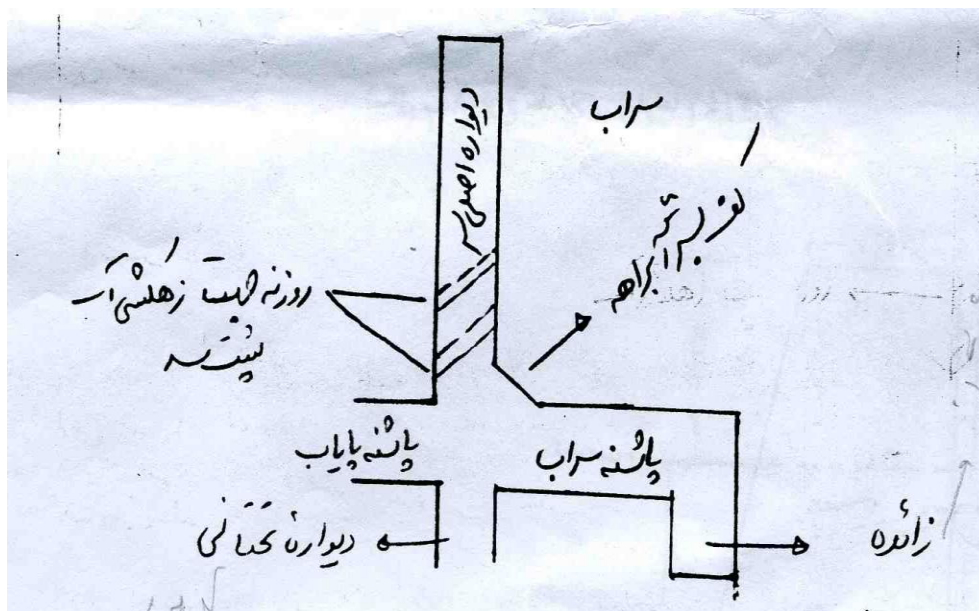 سراب
دیواره اصلی سد
روزنه جهت زهکشی آب
پشت سد
پاشنه پایاب
پاشنه سراب
دیواره تحتانی
زائده